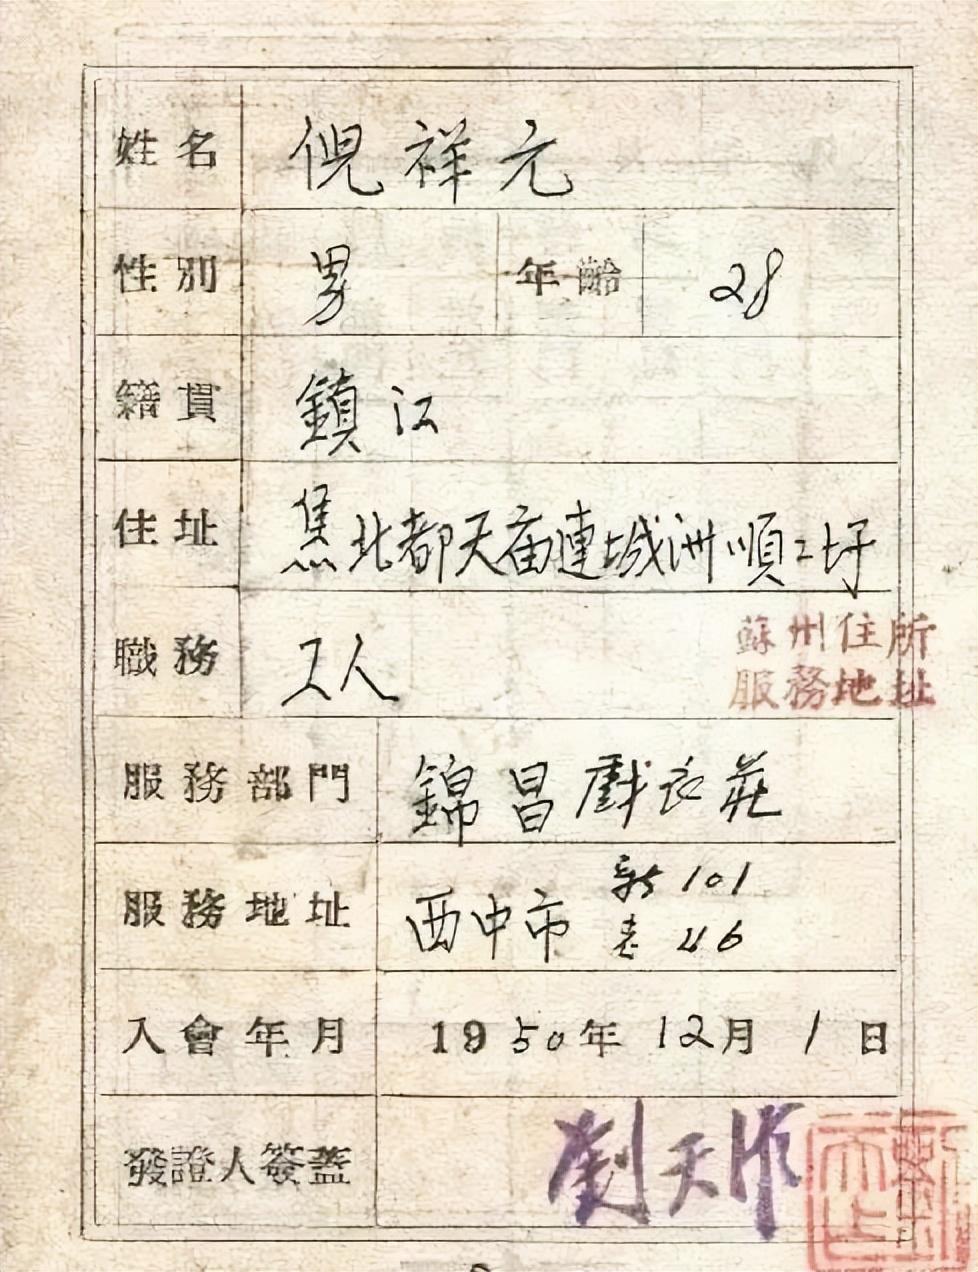 姓名 倪祥元
性別 男 年齡 28
籍貫 鎮江
住址 焦北都天庙連城洲順二圩
職務 工人
蘇州住所
服務地址
服務部門 錦昌戲衣莊
服務地址 西中市 新 101
老 46
入會年月 1950年12月1日
發證人簽蓋 劉天